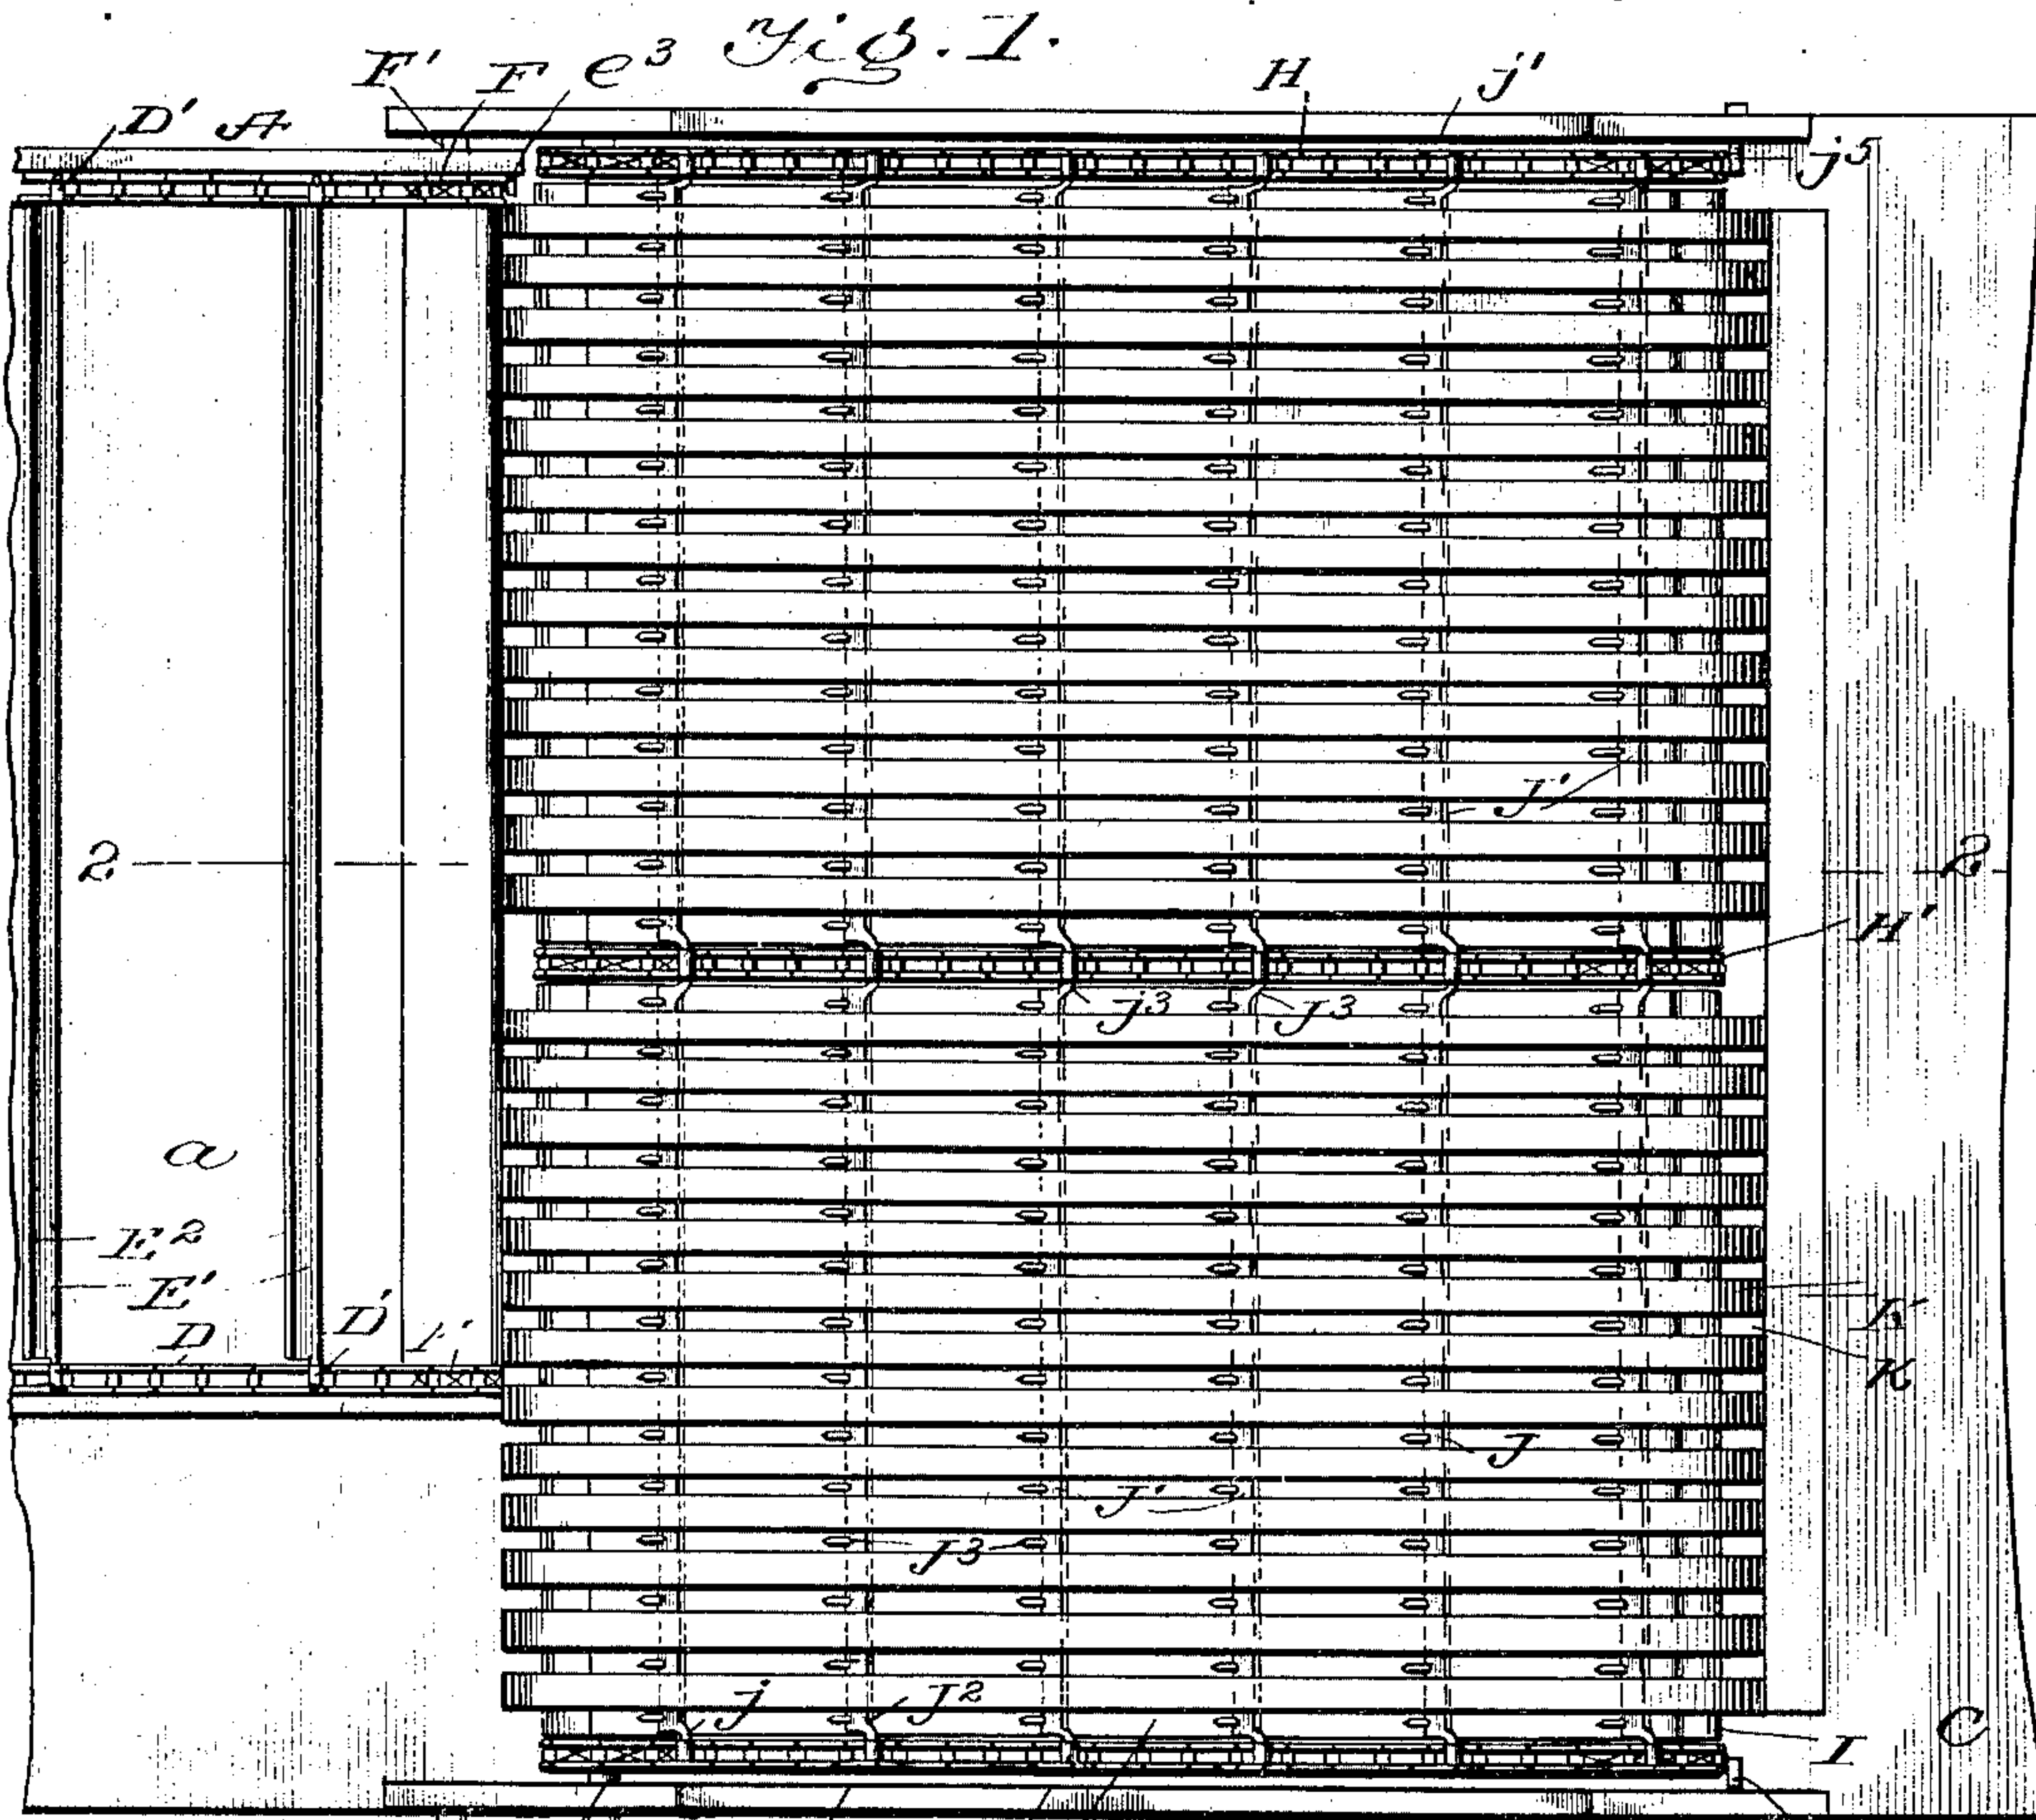 Fig. 1.
F' F e³ H j'
D' A
j⁵
J'
2 2
H'
j³ J³
a
E²
E'
D D' F
K'
K
J
J'
J³
j J²
I C